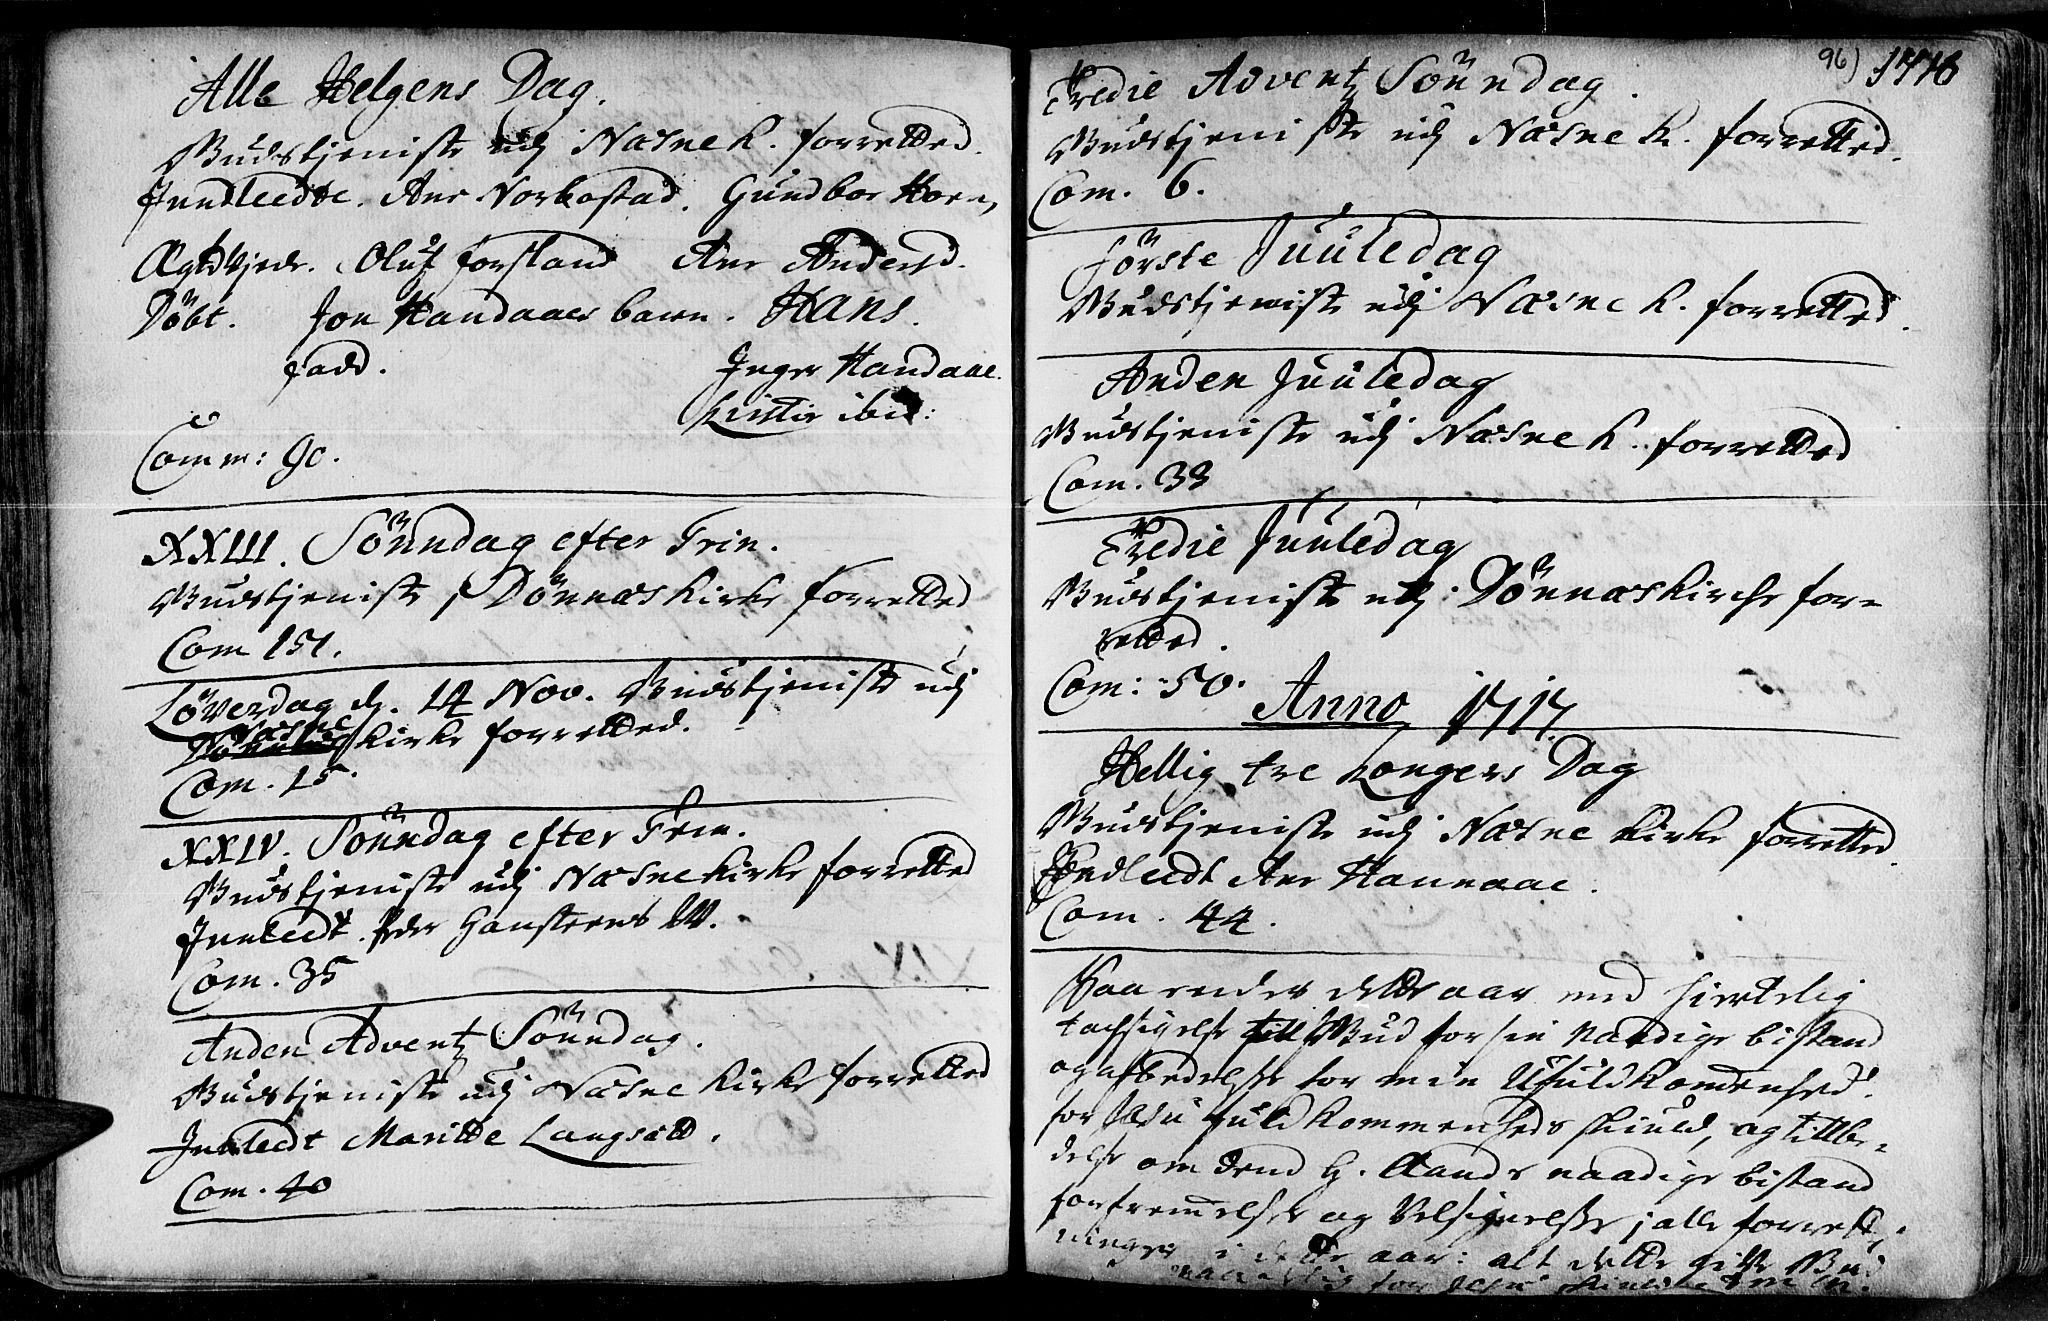 Alle Helgens Dag.
Gudstjeniste udj Næsne K. forretted.
Innleedde. Ane Norbostad. Gundbor Horn,
Ægtskjede. Oluf forstand Ane Andersd.
Döbt. Jon Handaaes barn. Hans.
fadd. Inger Handaae.
Kirstie ibid:
Comm: 90.
XXIII. Sönndag efter Trin.
Gudstjeniste j Dönnæs Kirke forretted
Com 151.
Löverdag d. 14 Nov. Gudstjeniste udj
Næsne
Kirke forretted.
Com. 15.
XXIV. Sönndag efter Trin.
Gudstjeniste udj Næsne Kirke forretted
Innleedt. Peder Hansteens W.
Com. 35
Anden Advents Sönndag.
Gudstjeniste udj Næsne Kirke forretted
Innleedt Maritte Langsætt.
Com. 40
96) 1716
Tredie Advents Sönndag.
Gudstjeniste udj Næsne K. forretted.
Com. 6.
förste Juuledag
Gudstjeniste udj Næsne K. forretted.
Anden Juuledag
Gudstjeniste udj Næsne K. forretted
Com. 33
Tredie Juuledag
Gudstjeniste udj Dönnæs Kirche for=
retted.
Com: 50.
Anno 1717
Hellig tre Kongers Dag
Gudstjeniste udj Næsne Kirke forretted.
Indleedt Ane Hannaae.
Com. 44.
Saa endes dette aar med hiertelig
tachsigelse till Gud for sin Naadige bistand
og afbedelse for min Ufuldkomenhed
for Jesu fuldkommenheds skiuld, og tillbe=
delse om dend H. Aands naadige bistand
forfremelse og Velsignelse j alle forrett,
ninger i dette aar: alt dette give Gud
for Jesu skiuld